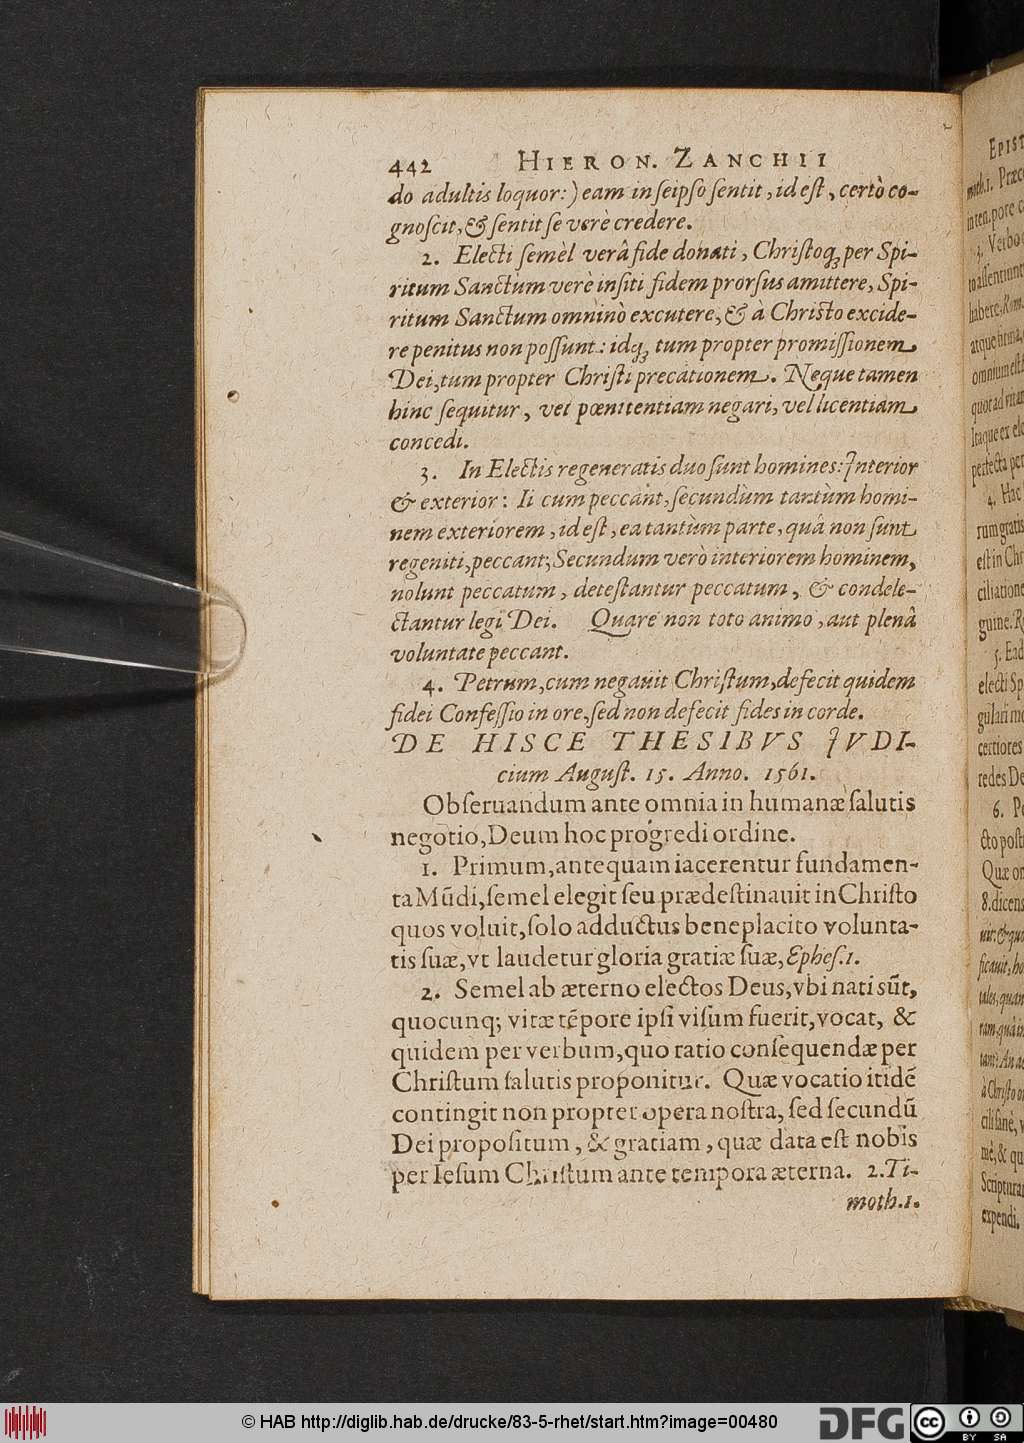 442 HIERON. ZANCHII
do adultis loquor:) eam in seipso sentit, id est, certò co-
gnoscit, & sentit se verè credere.
2. Electi semèl verâ fide donati, Christoq; per Spi-
ritum Sanctum verè insiti fidem prorsus amittere, Spi-
ritum Sanctum omninò excutere, & à Christo excide-
re penitus non possunt: idq; tum propter promissionem
Dei, tum propter Christi precationem. Neque tamen
hinc sequitur, vel pœnitentiam negari, vel licentiam
concedi.
3. In Electis regeneratis duo sunt homines: Interior
& exterior: Ii cum peccant, secundùm tantùm homi-
nem exteriorem, id est, ea tantùm parte, quâ non sunt
regeniti, peccant; Secundum verò interiorem hominem,
nolunt peccatum, detestantur peccatum, & condele-
ctantur legi Dei. Quare non toto animo, aut plenâ
voluntate peccant.
4. Petrum, cum negauit Christum, defecit quidem
fidei Confessio in ore, sed non defecit fides in corde.
DE HISCE THESIBVS JVDI-
cium August. 15. Anno. 1561.
Obseruandum ante omnia in humanæ salutis
negotio, Deum hoc progredi ordine.
1. Primum, antequam iacerentur fundamen-
ta Mũdi, semel elegit seu prædestinauit in Christo
quos voluit, solo adductus beneplacito volunta-
tis suæ, vt laudetur gloria gratiæ suæ, Ephes. 1.
2. Semel ab æterno electos Deus, vbi nati sũt,
quocunq; vitæ tẽpore ipsi visum fuerit, vocat, &
quidem per verbum, quo ratio consequendæ per
Christum salutis proponitur. Quæ vocatio itidẽ
contingit non propter opera nostra, sed secundũ
Dei propositum, & gratiam, quæ data est nobis
per Iesum Christum ante tempora æterna. 2. Ti-
moth. 1.
EPIST
moth. 1. Præc
in tempore
3. Verbo
to assentiunt
habere, Rom.
atque firma,
omnium est
quot ad vitam
Itaque ex ele
perfecta per
4. Hac
rum gratis
est in Chr
ciliatione
guine. R
5. Ead
electi Sp
gulari mo
certiores
redes De
6. Pe
cto post
Quæ on
8. dicens
uit: & quo
ficauit, ho
tales, quam
ram, quâ in
tant? An ac
à Christo o
cili sanè, v
mẽ, & qu
Scripturar
expendi.
© HAB http://diglib.hab.de/drucke/83-5-rhet/start.htm?image=00480
DFG
cc BY SA